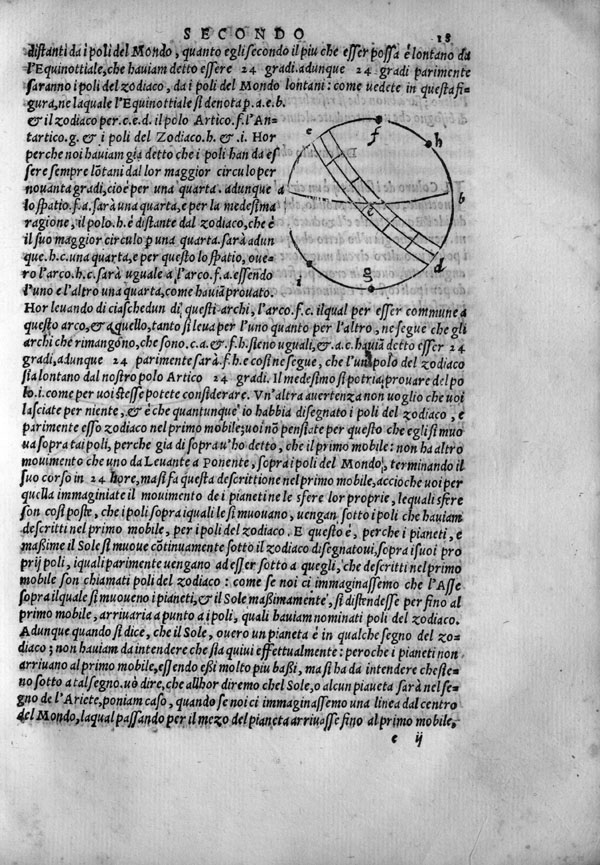 SECONDO 18
distanti da i poli del Mondo, quanto egli secondo il piu che esser possa è lontano da
l'Equinottiale, che haviam detto essere 24 gradi. adunque 24 gradi parimente
saranno i poli del zodiaco, da i poli del Mondo lontani: come vedete in questa fi-
gura, ne laquale l'Equinottiale si denota p.a.e.b.
& il zodiaco per.c.e.d. il polo Artico.f. l'An-
tartico.g. & i poli del Zodiaco.h. & .i. Hor
perche noi haviam gia detto che i poli han da es
sere sempre lõtani dal lor maggior circulo per
novanta gradi, cioè per una quarta. adunque
lo spatio.f.a. sarà una quarta, e per la medesima
ragione, il polo.h. è distante dal zodiaco, che è
il suo maggior circulo p una quarta. sarà adun
que.h.c. una quarta, e per questo lo spatio, ove-
ro l'arco.h.c. sarà uguale a l'arco.f.a. essendo
l'uno e l'altro una quarta, come haviã provato.
Hor levando di ciaschedun di questi archi, l'arco.f.c. il qual per esser commune a
questo arco, & a quello, tanto si leva per l'uno quanto per l'altro, ne segue che gli
archi che rimangono, che sono.c.a. & f.h. sieno uguali, & .a.c. haviã detto esser 24
gradi, adunque 24 parimente sarà.f.h. e cosi ne segue, che l'un polo del zodiaco
sia lontano dal nostro polo Artico 24 gradi. Il medesimo si potria provare del po
lo.i. come per voi stesse potete considerare. Vn'altra avertenza non voglio che voi
lasciate per niente, & è che quantunqu' io habbia disegnato i poli del zodiaco, e
parimente esso zodiaco nel primo mobile; voi nõ pensiate per questo che egli si muo
va sopra tai poli, perche gia di sopra v'ho detto, che il primo mobile: non ha altro
movimento che uno da Levante a Ponente, sopra i poli del Mondo, terminando il
suo corso in 24 hore, ma si fa questa descrittione nel primo mobile, accioche voi per
quella immaginiate il movimento de i pianeti ne le sfere lor proprie, lequali sfere
son cosi poste, che i poli sopra iquali le si muovano, vengan sotto i poli che haviam
descritti nel primo mobile, per i poli del zodiaco. E questo è, perche i pianeti, e
maßime il Sole si muove cõtinuamente sotto il zodiaco disegnatovi, sopra i suoi pro
prij poli, iquali parimente vengano ad esser sotto a quegli, che descritti nel primo
mobile son chiamati poli del zodiaco: come se noi ci immaginassemo che l'Asse
sopra il quale si muoveno i pianeti, & il Sole maßimamente, si distendesse per fino al
primo mobile, arrivaria a punto a i poli, quali haviam nominati poli del zodiaco.
Adunque quando si dice, che il Sole, overo un pianeta è in qualche segno del zo-
diaco; non haviam da intendere che sia quivi effettualmente: peroche i pianeti non
arrivano al primo mobile, essendo eßi molto piu baßi, ma si ha da intendere che ste-
no sotto a tal segno. vò dire, che allhor diremo chel Sole, o alcun piaueta sarà nel se-
gno de l'Ariete, poniam caso, quando se noi ci immaginassemo una linea dal centro
del Mondo, laqual passando per il mezo del pianeta arrivasse fino al primo mobile,
e ij
f
h
c
a
b
e
d
i
g